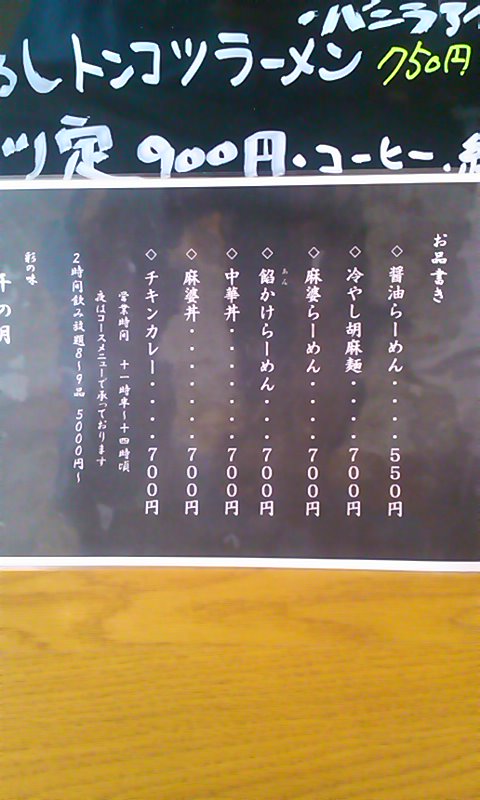 ・バニラアイ
るしトンコツラーメン 750円
ツ定 900円・コーヒー・
お品書き
◇醤油らーめん・・・・550円
◇冷やし胡麻麺・・・・700円
◇麻婆らーめん・・・・700円
◇餡かけらーめん・・・700円
あん
◇中華丼・・・・・・・700円
◇麻婆丼・・・・・・・700円
◇チキンカレー・・・・700円
営業時間 十一時半～十四時頃
夜はコースメニューで承っております
2時間飲み放題8～9品 5000円～
彩の味